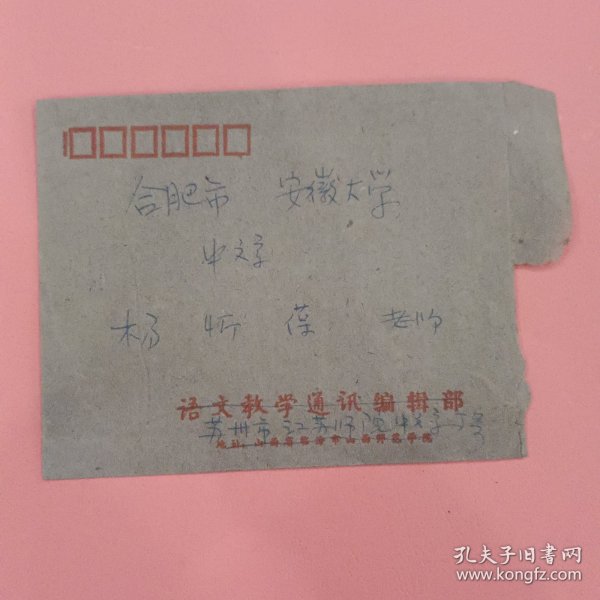 合肥市 安徽大学
中文系
杨忻葆 老师
语文教学通讯编辑部
苏州市江苏师院中文系
地址：山西省临汾市山西师范学院
孔夫子旧书网
www.kongfz.com